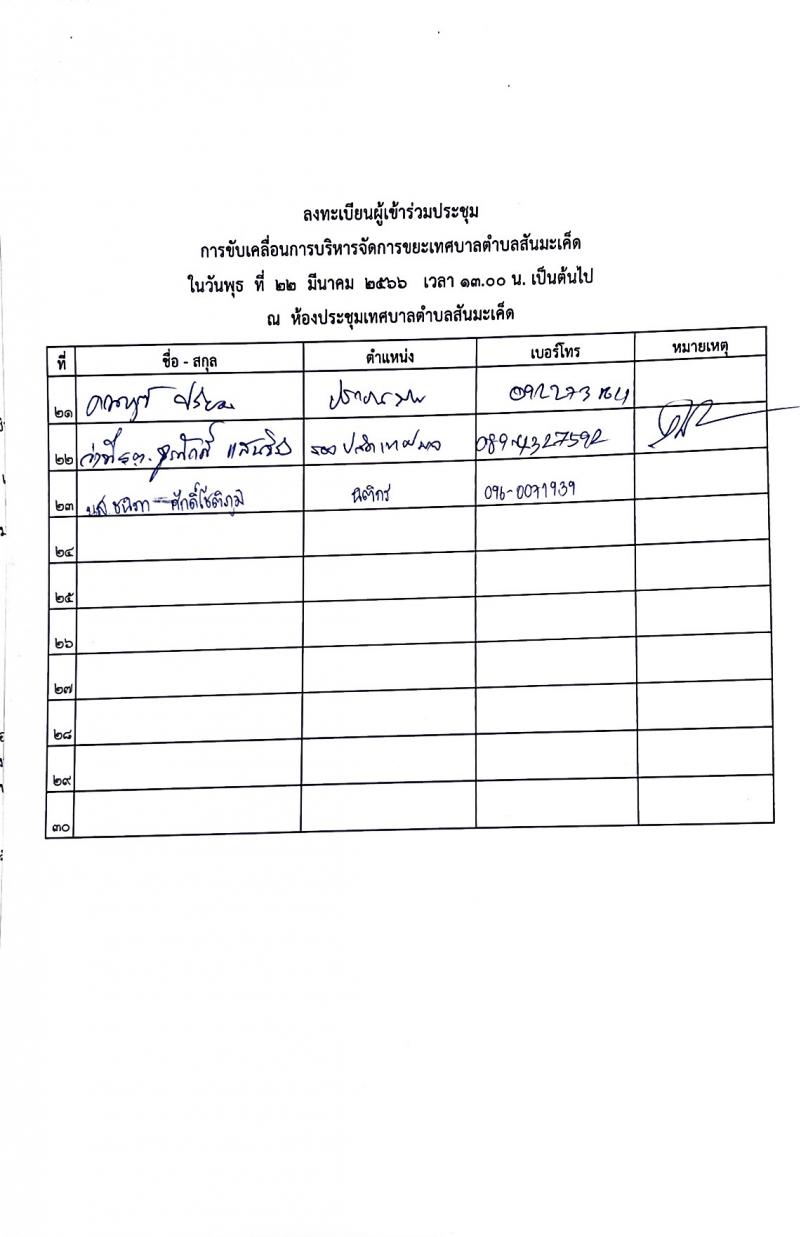 ลงทะเบียนผู้เข้าร่วมประชุม
การขับเคลื่อนการบริหารจัดการขยะเทศบาลตำบลสันมะเค็ด
ในวันพุธ ที่ ๒๒ มีนาคม ๒๕๖๖ เวลา ๑๓.๐๐ น. เป็นต้นไป
ณ ห้องประชุมเทศบาลตำบลสันมะเค็ด
ที่ ชื่อ - สกุล ตำแหน่ง เบอร์โทร หมายเหตุ
๒๑
๒๒ ว่าที่ร.ต. รองปลัดเทศบาล
๒๓ น.ส. ชนิภา ศักดิ์โชติภูมิ นิติกร 096-0071939
๒๔
๒๕
๒๖
๒๗
๒๘
๒๙
๓๐